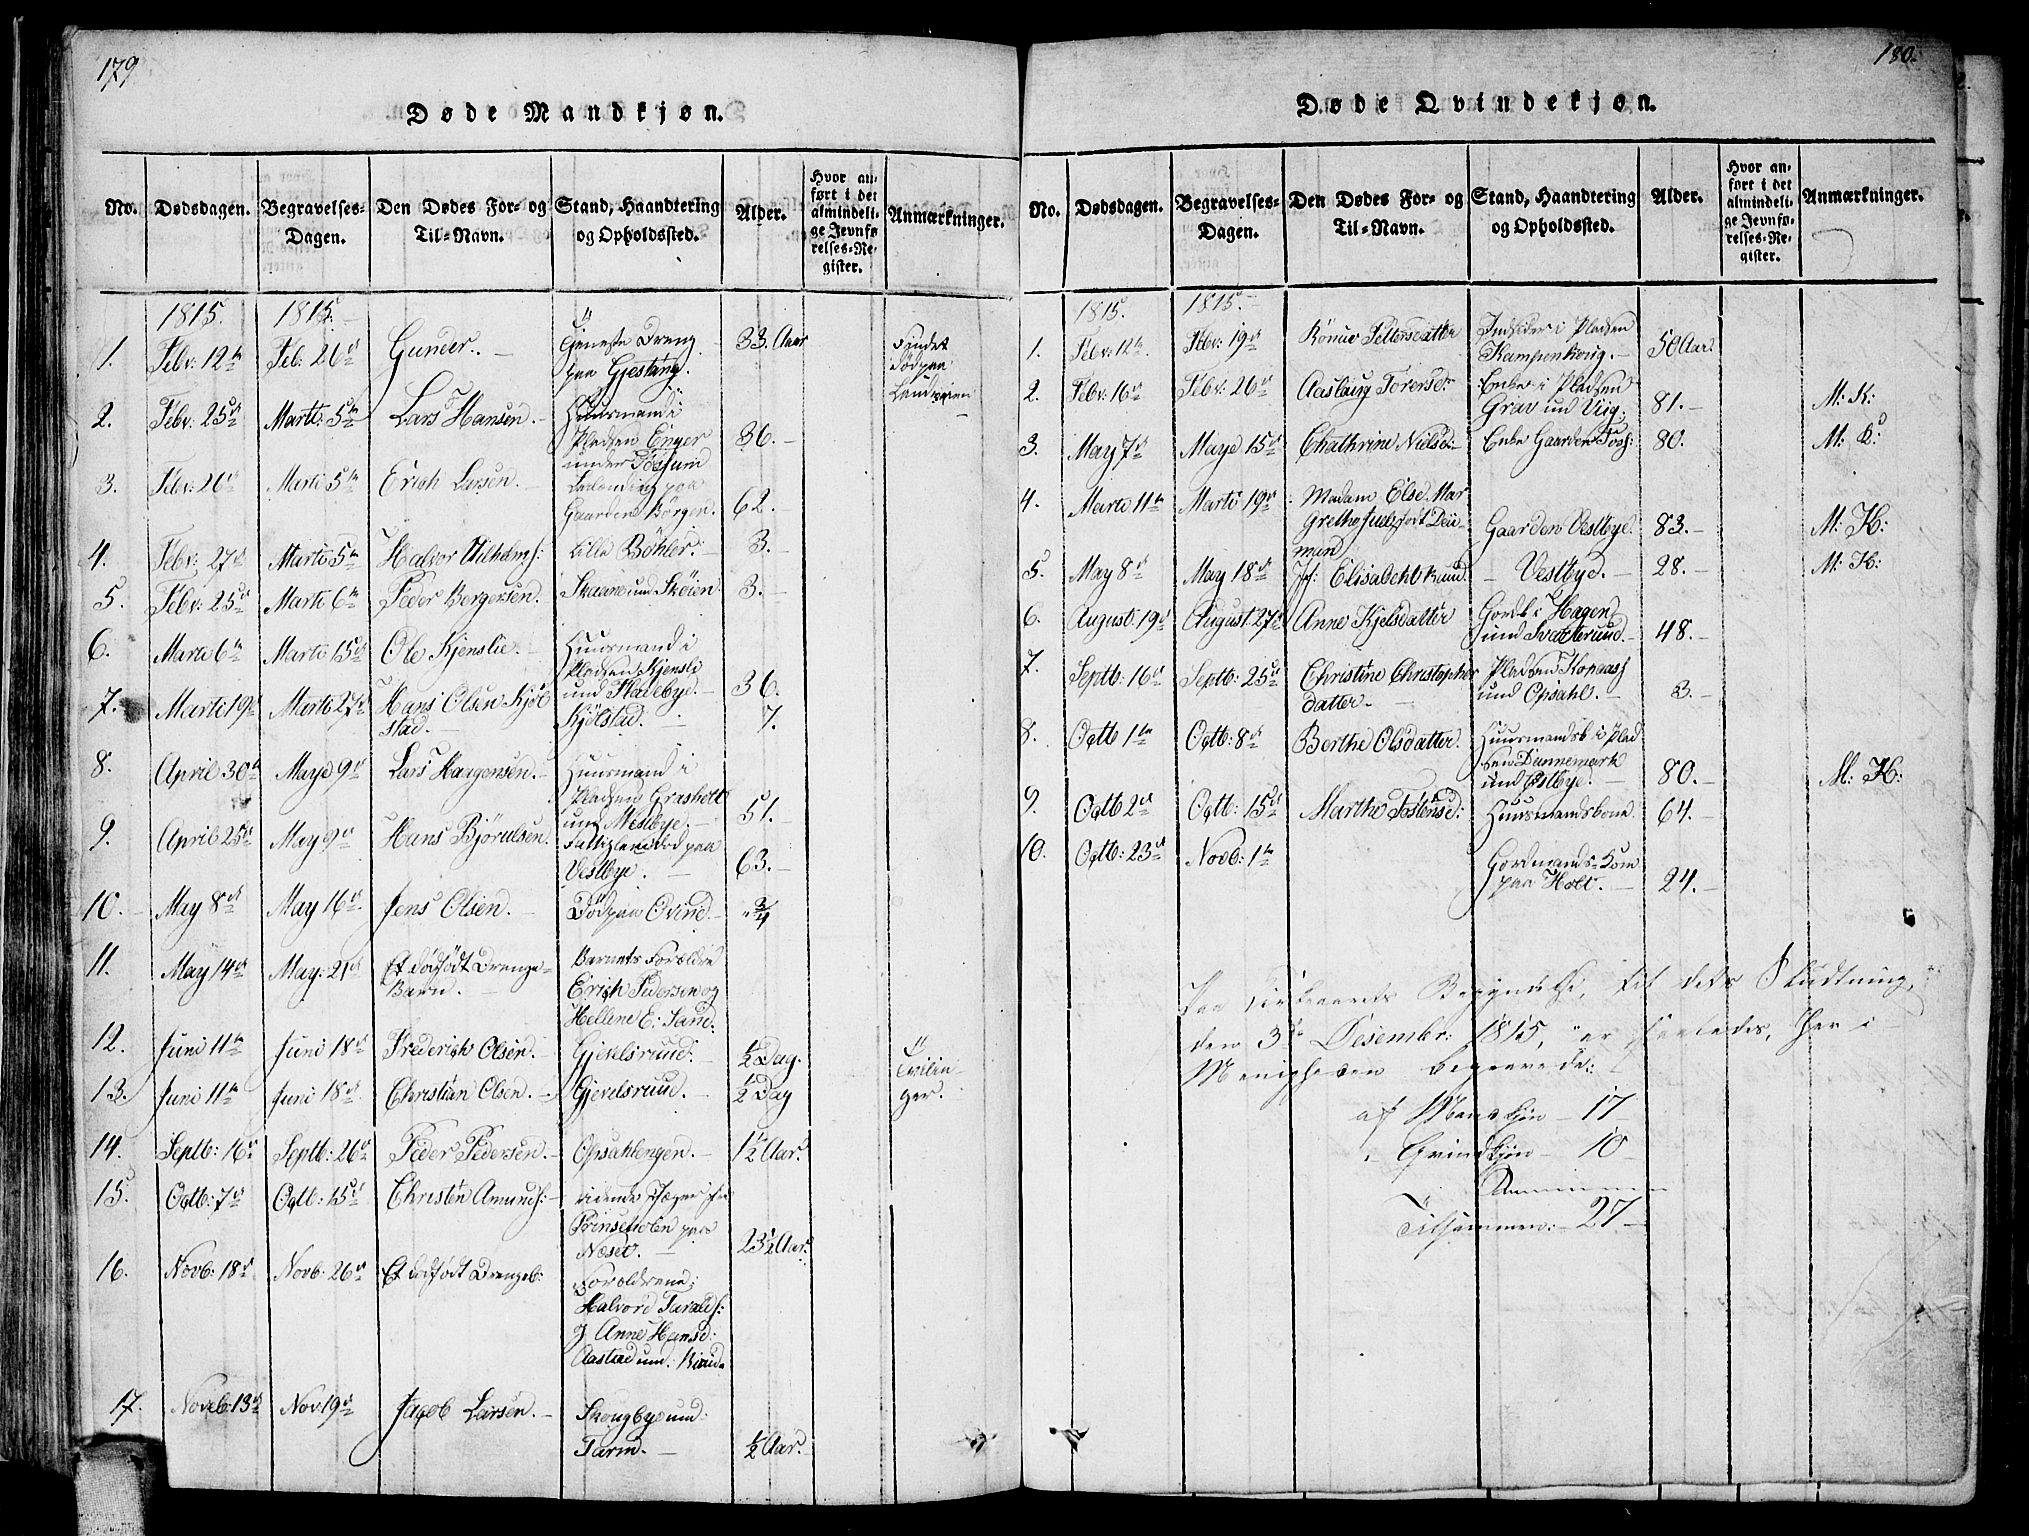 179
Døde Mandkjøn.
No. Dødsdagen. Begravelses-Dagen. Den Dødes For- og Til-Navn. Stand, Haandtering og Opholdssted. Alder. Hvor anført i det almindelige Jevnførelses-Register. Anmærkninger.
1815. 1815.
1. Febr: 12te Feb. 26de Gunder. Tjeneste Dreng paa Gjestang. 33. Aar Fundet Død paa Landveien
2. Febr: 25de Marti: 5te Lars Hansen. Huusmand i Pladsen Enger under Tøssum 36.
3. Febr: 26de Marti 5te Erich Larsen. paa Gaarden Børgen. 62.
4. Febr: 27de Marti 5te Halvor Vilhelms: Lille Bøhler. 3.
5. Febr: 25de Marti 6te Peder Bergersen. Skaare und Skøien. 3.
6. Marti 6te Marti 15de Ole Kjenslie. Huusmand i Pladsen Kjensli und Haldebye. 36.
7. Marti 19de Marti 27de Hans Olsen Kjølstad. Kjølstad. 7.
8. April 30te Maye 9de Lars Haagensen. Huusmand i Pladsen Grasholt und Mestbye. 51.
9. April 25de May 9de Hans Bjørulsen. Fattiglem død paa Vestbye. 63.
10. May 8de May 16de Jens Olsen. Død paa Qvind. " 3/4
11. May 14de May: 21de Et dødfødt Drenge-Barn. Barnets Forældre Erich Pedersen og Hellene E: Sand.
12. Juni 11te Juni 18de Frederich Olsen. Gjevelsruud. 1/2 Dag. Tvilinger.
13. Juni 11te Juni 18de Christian Olsen. Gjevelsruud. 1/2 Dag
14. Septb: 16de Septb: 26de Peder Pedersen. Opsahlengen. 1 1/2 Aar.
15. Octb: 7de Octb: 15de Christen Amunds: ridende Jæger fra Prinseholen paa Næset. 23 1/2 Aar.
16. Novb: 18de Novb: 26de Et dødfødt Drengeb: Forældrene: Halvord Taralds: og Anne Hansd: Aastad und.
17. Novb: 13de Nov 19de Jacob Larsen. Skougbye und: Tarm. 1/2 Aar.
180.
Døde Qvindekjøn.
No. Dødsdagen. Begravelses-Dagen. Den Dødes For- og Til-Navn. Stand, Haandtering og Opholdssted. Alder. Hvor anført i det almindelige Jevnførelses-Register. Anmærkninger.
1815. 1815.
1. Febr: 12te Febr: 19de Rønnov Pettersdatter Indsider i Pladsen Kampenhoug. 50 Aar.
2. Febr: 16de Febr: 26de Aaslaug Torersd: Enke i Pladsen Grav und Viig. 81. M: K:
3. May 7de Maye 15de Chathrine Nielsd: Enke Gaarden Foss: 80. M: K:
4. Marti 11te Marti 19de Madam Else Margrethe Juel født Deimand Gaarden Vestbye. 83. M: K:
5. May 8de May 18de Jf: Elisabeth Vestbye. 28. M: K:
6. August. 19de August. 27de Anne Kjelsdatter Gordb i Hagen und 48.
7. Septb: 16de Septb: 25de Christine Christopherdatter Pladsen und Opsahl. 3.
8. Octb 1te Octb: 8de Berthe Olsdatter. Huusmandsk i Pladsen Dannemark und Østbye. 80. M: K:
9. Octb 2de Octb: 15de Marthe Tostensd: Huusmandskone 64.
10. Octb: 23de Novb: 1te Gordmands-Kone paa Holt. 24.
Fra Kirkeaarets Begyndelse, til dets Sluttning,
den 3de Desembr: 1815, er saaledes, her i
Menigheden begravede:
af Mandkjøn - 17
" Qvindkjøn - 10
Tilsammen: - 27